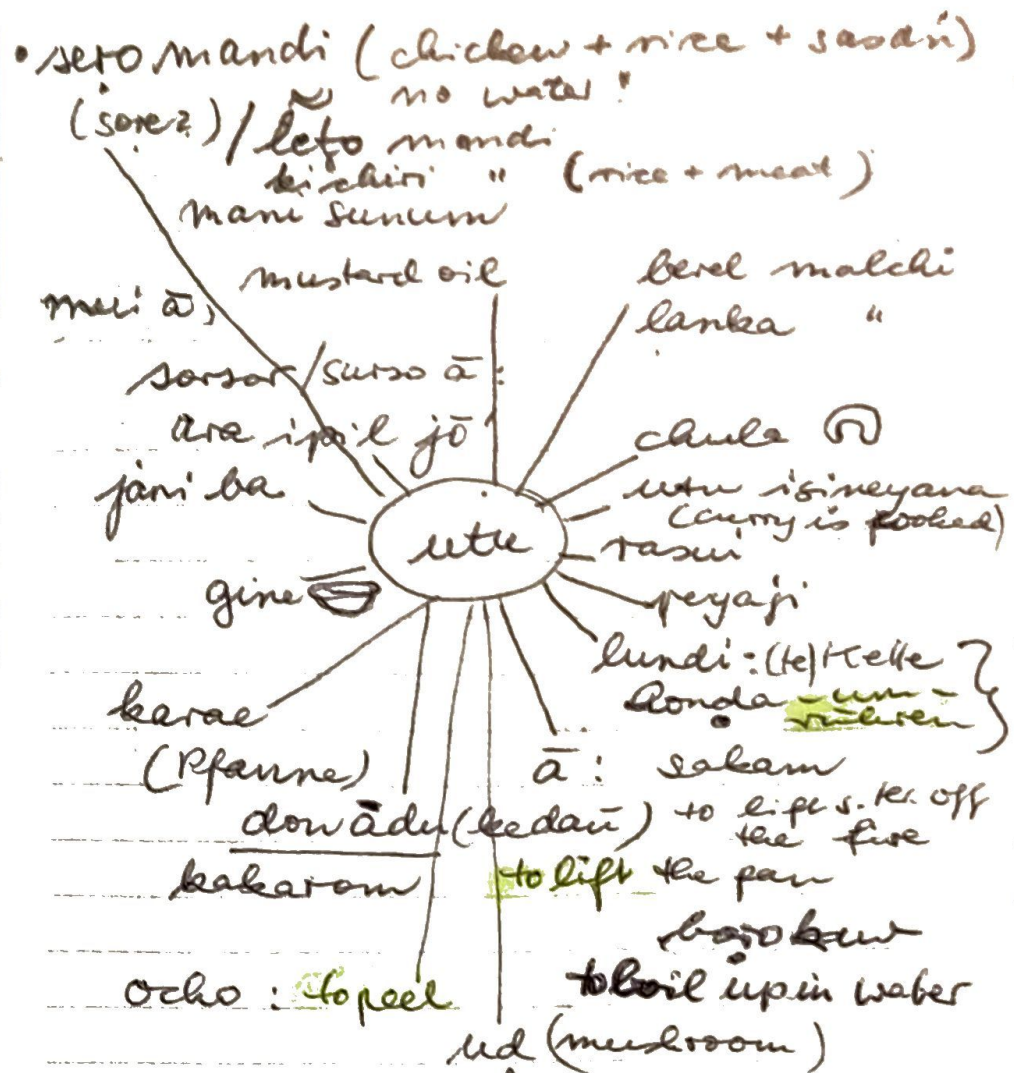 • sero mandi (chicken + rice + sasaṅ)
no water!
(sore?) / leṭo mandi
kichiri " (rice + meat)
mani sunum
mustard oil
berel malchi
lanka "
meri ā,
sorsor/surso ā:
ara ipil jō
chula
jāni ba
utu isineyana
(curry is cooked)
utu
rasui
gine
peyaji
lundi: (te) Kelle
ḍonda -um-
rühren
karae
(Pfanne)
ā: sakam
don ādu (kedaṅ) to lift s. th. off
the fire
kakarom
to lift the pan
bojo
to boil up in water
ocho: to peel
ud (mushroom)